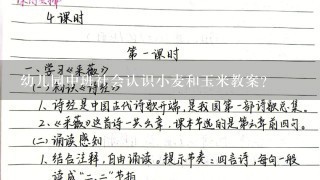 4课时
第一课时
一、学习《采薇》
幼儿园中班社会认识小麦和玉米教案?
(一)知识《诗经》
1、诗经是中国古代诗歌开端,是我国第一部诗歌总集。
2、《采薇》这首诗一共六章,课本节选的是第六章前四句。
(二)诵读感知
1、结合注释,自由诵读。提示节奏:四言诗,每句一般
读成“二、二”节拍